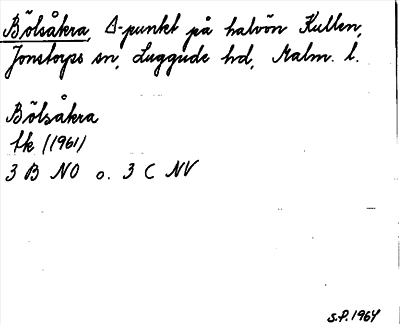 Bölsåkra, Δ-punkt på halvön Kullen,
Jonstorps sn, Luggude hd, Malm. l.
Bölsåkra
fk (1961)
3 B NO o. 3 C NV
S.P. 1964